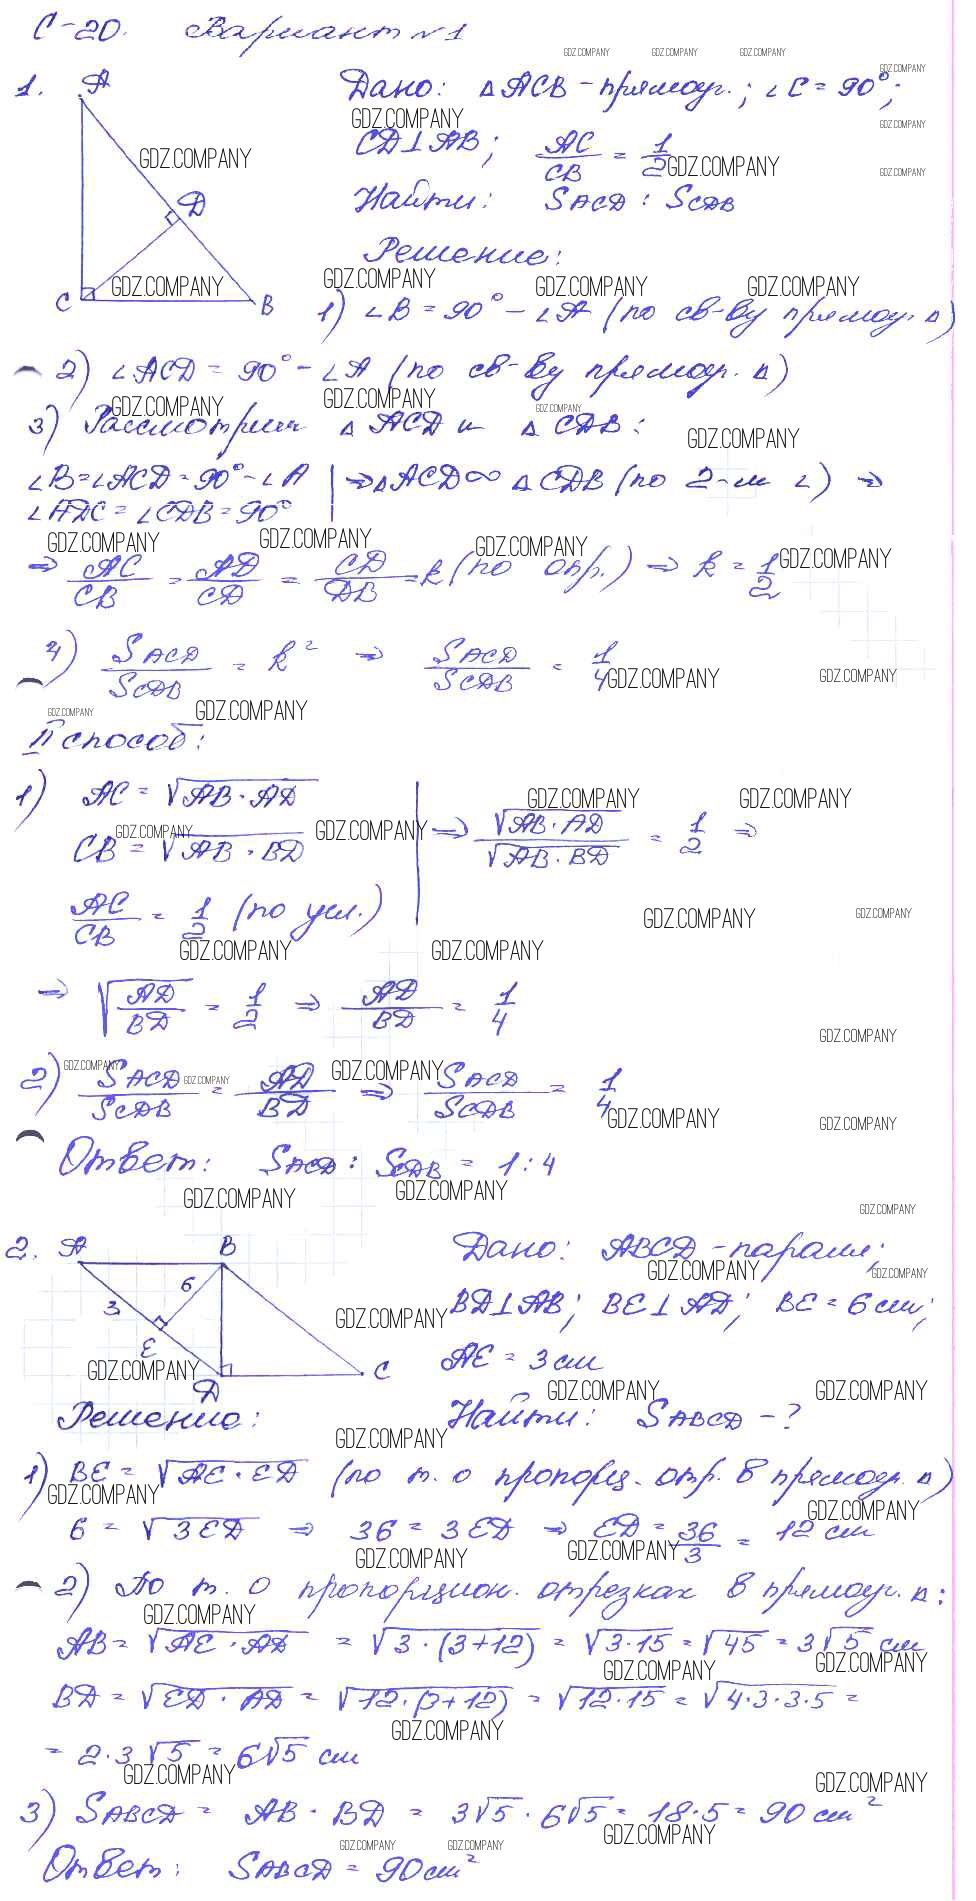 С-20. Вариант №1
1. А Д С В
Дано: △ACB – прямоуг.; ∠C = 90°;
CD⊥AB; AC/CB = 1/2
Найти: SACD : SCDB
Решение:
1) ∠B = 90° – ∠A (по св-ву прямоуг. △)
2) ∠ACD = 90° – ∠A (по св-ву прямоуг. △)
3) Рассмотрим △ACD и △CDB:
∠B = ∠ACD = 90° – ∠A | ⇒ △ACD ∞ △CDB (по 2-м ∠) ⇒
∠ADC = ∠CDB = 90°
⇒ AC/CB = AD/CD = CD/DB = k (по опр.) ⇒ k = 1/2
4) SACD/SCDB = k² ⇒ SACD/SCDB = 1/4
II способ:
1) AC = √AB · AD
CB = √AB · BD
⇒ √AB · AD/√AB · BD = 1/2 ⇒
AC/CB = 1/2 (по усл.)
⇒ √AD/BD = 1/2 ⇒ AD/BD = 1/4
2) SACD/SCDB = AD/BD ⇒ SACD/SCDB = 1/4
Ответ: SACD : SCDB = 1 : 4
2. А В 6 3 Е Д С
Дано: ABCD – паралл.;
BD⊥AB; BE⊥AD; BE = 6 см;
AE = 3 см
Решение: Найти: SABCD – ?
1) BE = √AE · ED (по т. о пропорц. отр. в прямоуг. △)
6 = √3ED ⇒ 36 = 3ED ⇒ ED = 36/3 = 12 см
2) По т. о пропорцион. отрезках в прямоуг. △:
AB = √AE · AD = √3 · (3+12) = √3·15 = √45 = 3√5 см
BD = √ED · AD = √12 · (3+12) = √12·15 = √4·3·3·5 =
= 2·3√5 = 6√5 см
3) SABCD = AB · BD = 3√5 · 6√5 = 18·5 = 90 см²
Ответ: SABCD = 90 см²
GDZ.COMPANY